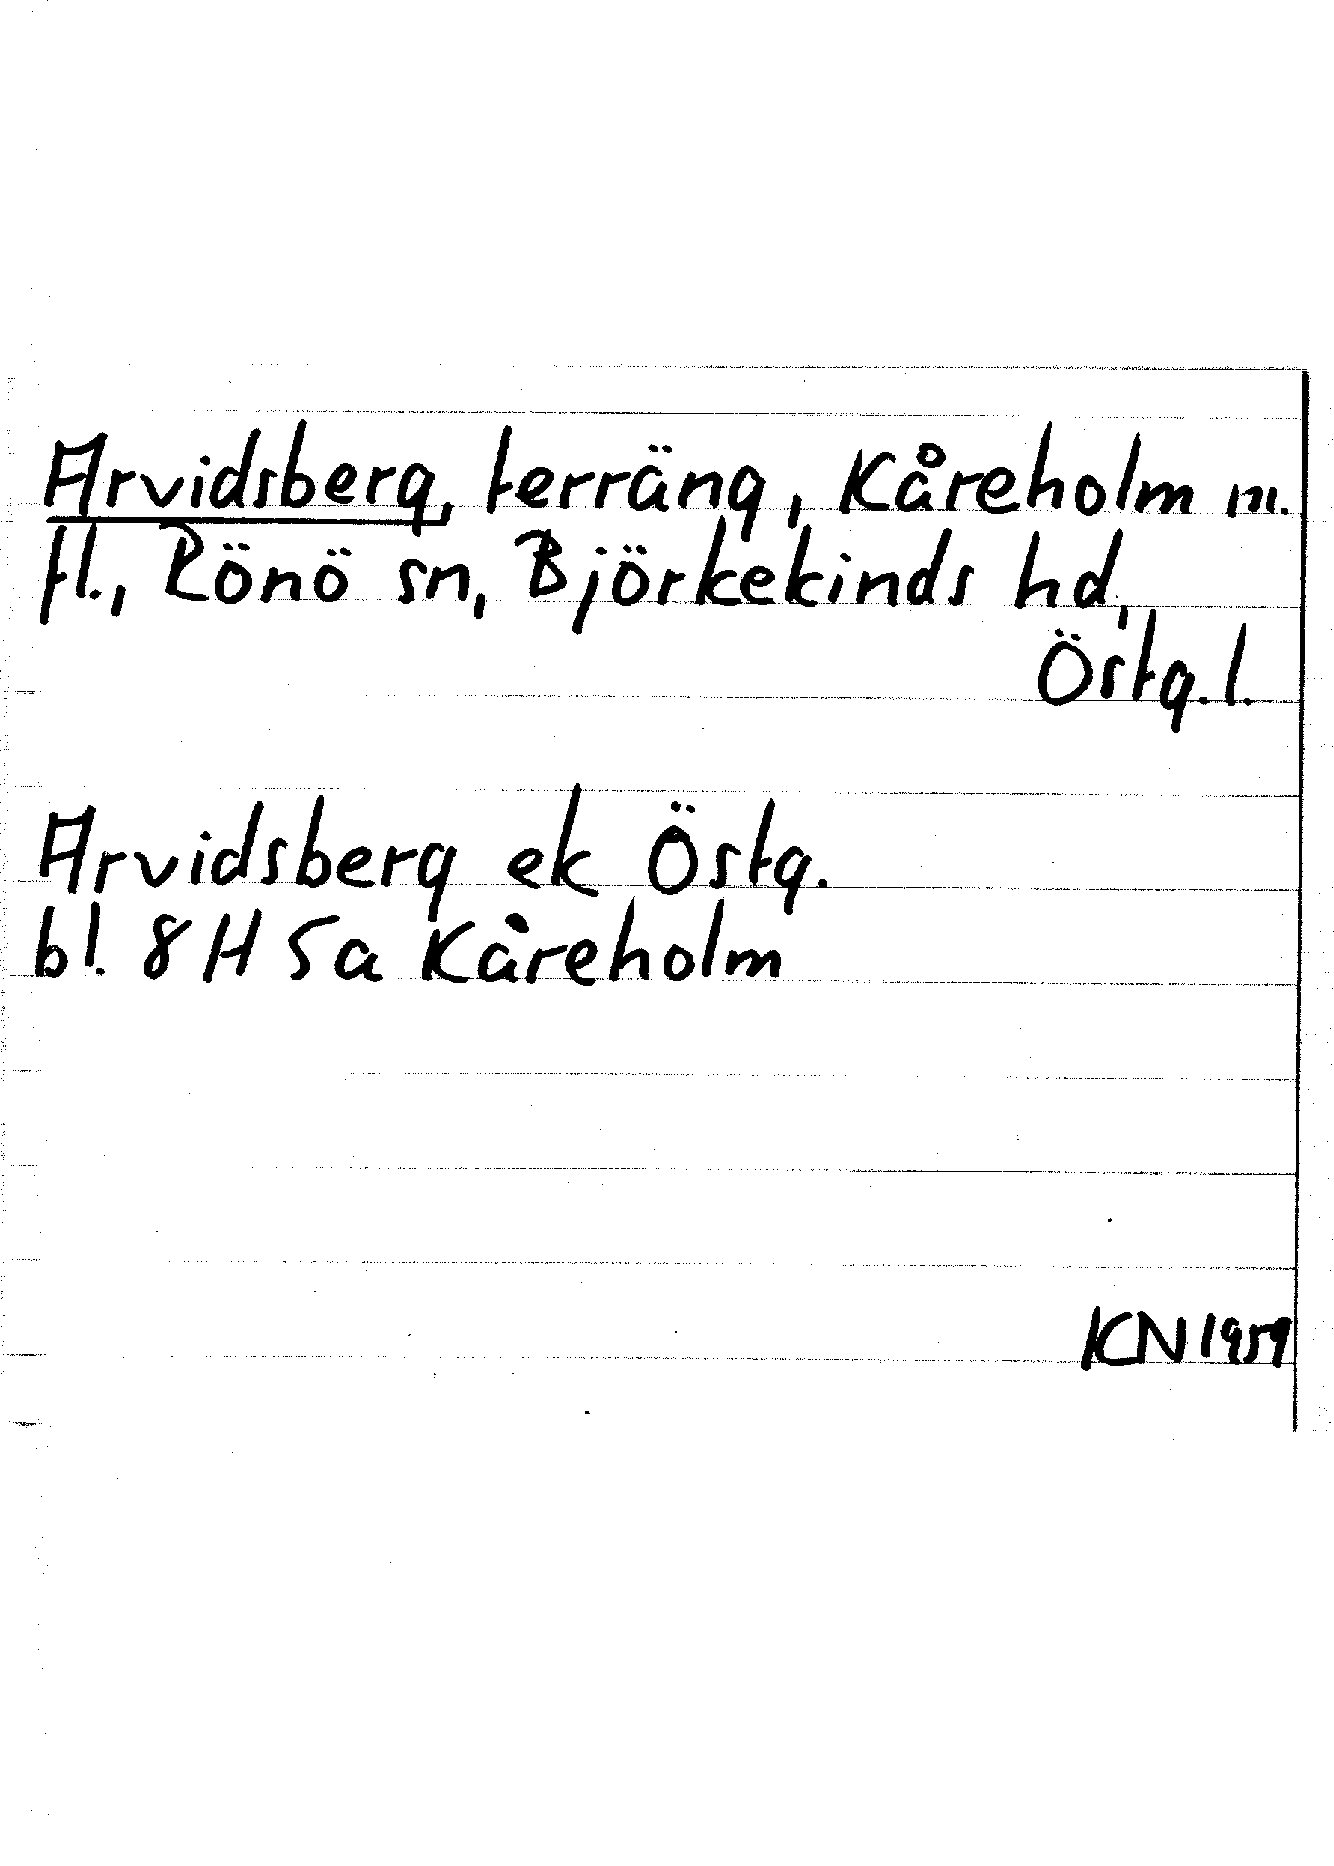 Arvidsberg, terräng, Kåreholm m.
fl., Rönö sn, Björkekinds hd,
Östg.l.
Arvidsberg ek Östg.
bl. 8H 5a Kåreholm
KN 1959